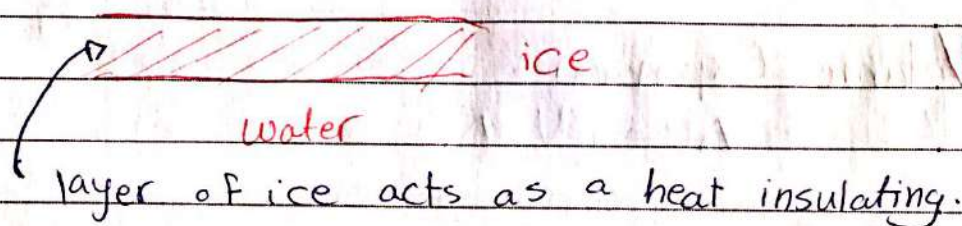 ice
water
layer of ice acts as a heat insulating.